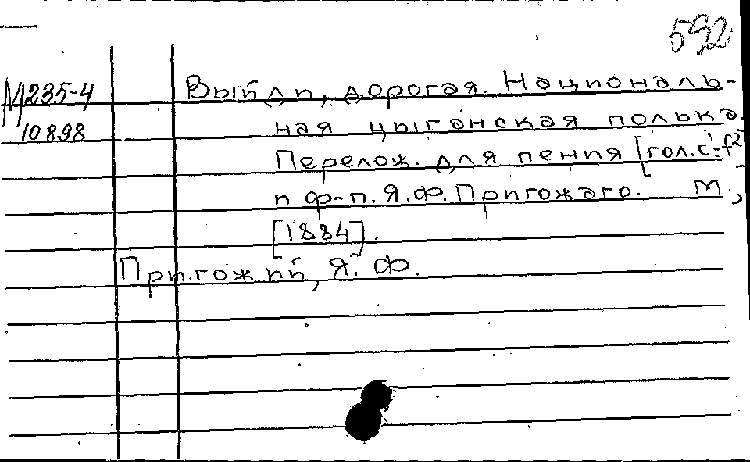 592
М235-4 Выйди, дорогая. Националь-
10898 ная цыганская полька.
Перелож. для пения [гол. c¹-f²]
и ф-п. Я.Ф. Пригожаго. М.,
[1884].
Пригожий, Я. Ф.